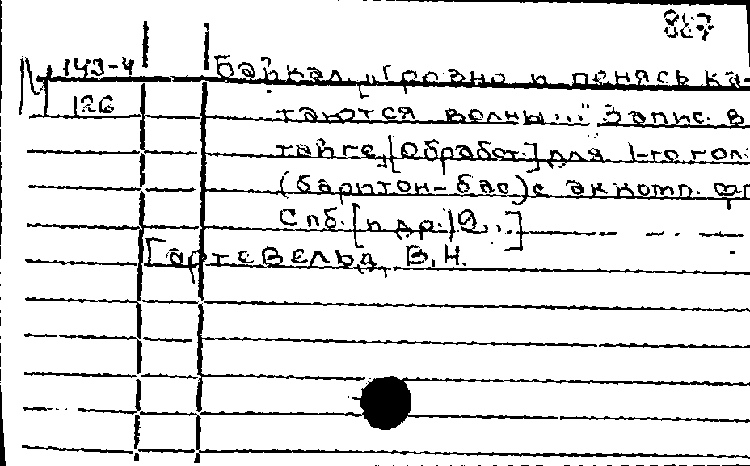 М 143-4
126
Байкал. „Грозно и пенясь ка-
таются волны..." Запис. в
тайге, [Обработ.] для 1-го гол.
(баритон-бас) с аккомп. фп
Спб. [и др.]
Гартевельд, В. Н.